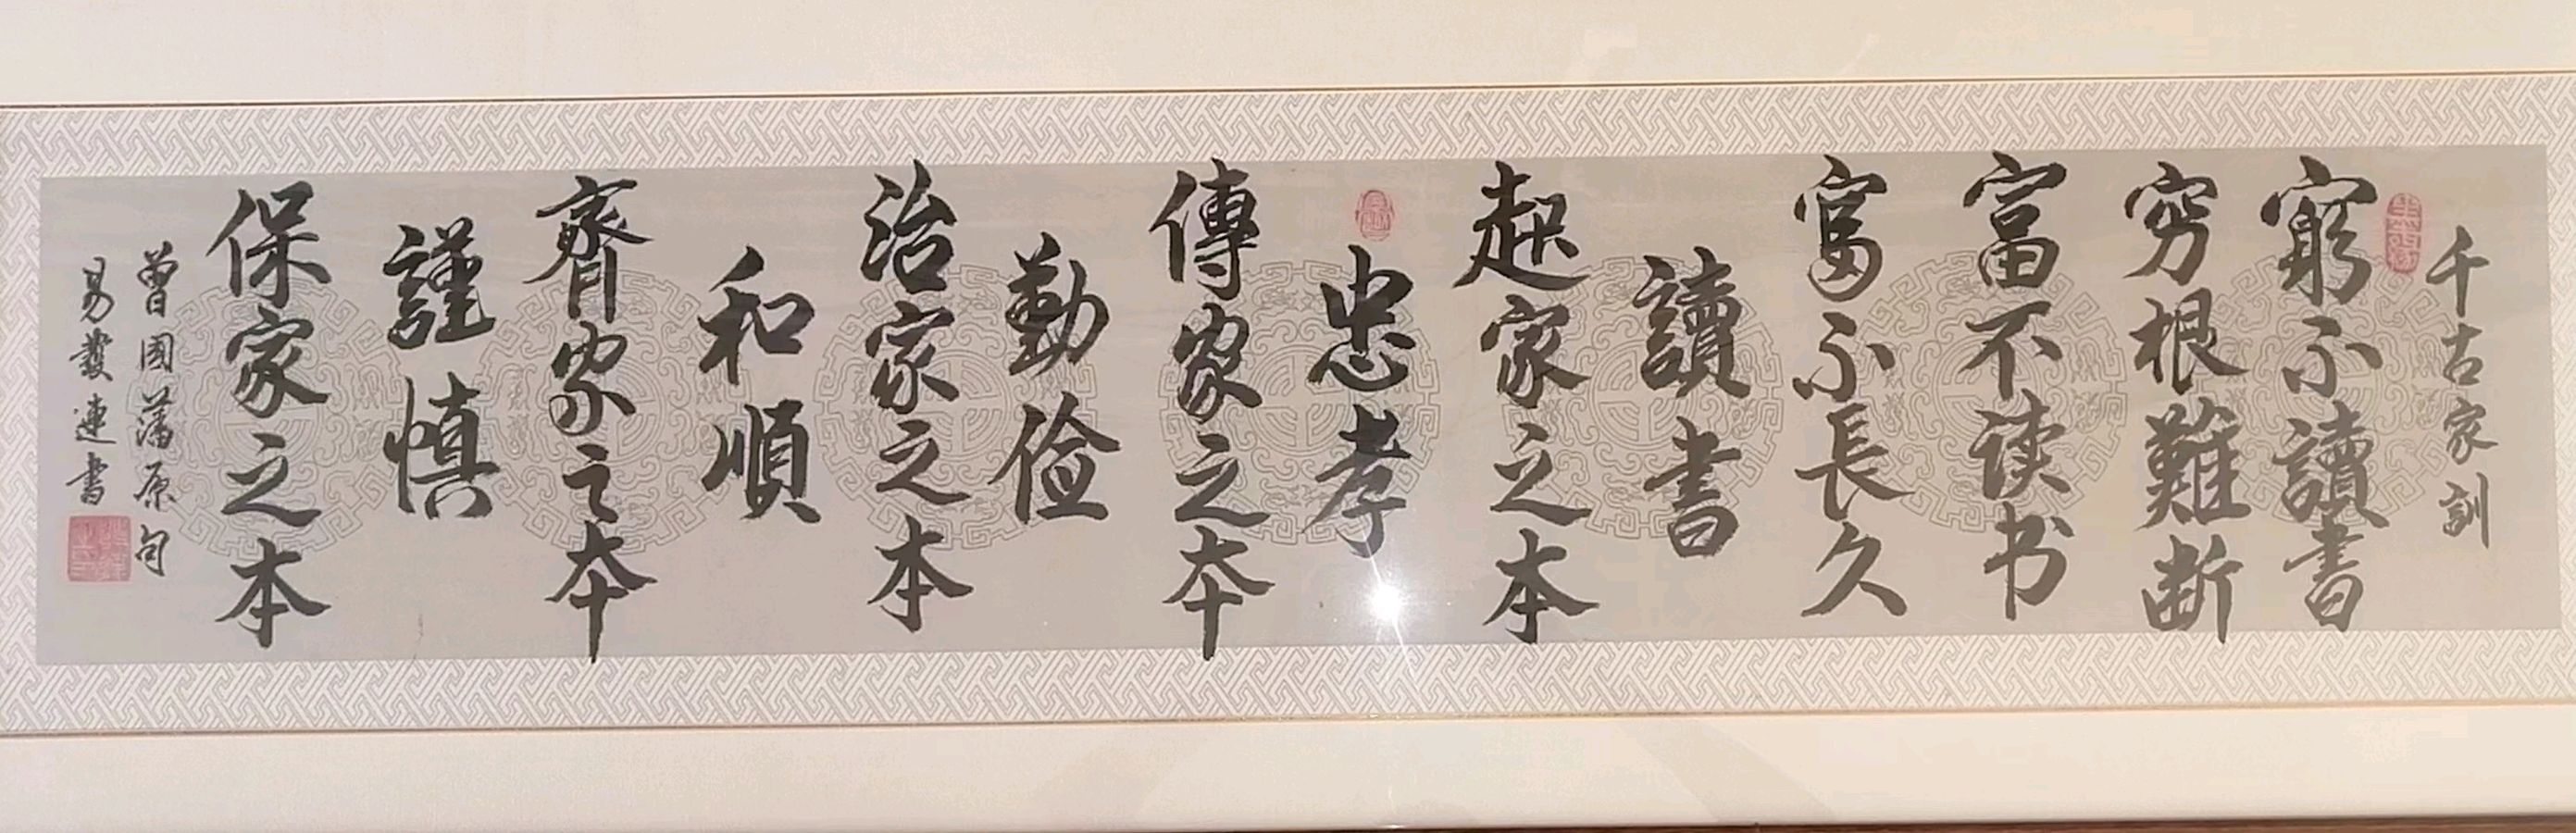 千古家訓
窮不讀書
穷根難断
富不读书
富不長久
讀書
起家之本
忠孝
傳家之本
勤儉
治家之本
和順
齊家之本
謹慎
保家之本
曾國藩原句
易蘐連書